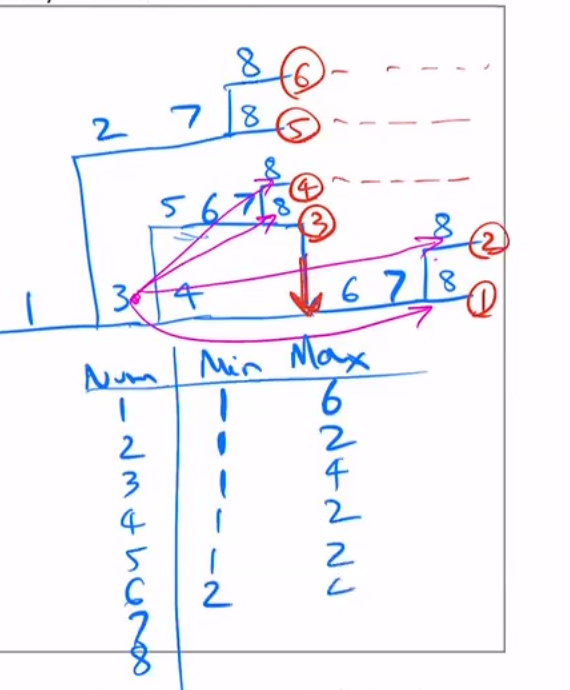 8 ⑥
2 7 8 ⑤
8 ④
5 6 7 8 ③
8 ②
1 3 4 6 7 8 ①
Num Min Max
1 1 6
2 1 2
3 1 4
4 1 2
5 1 2
6 2
7
8